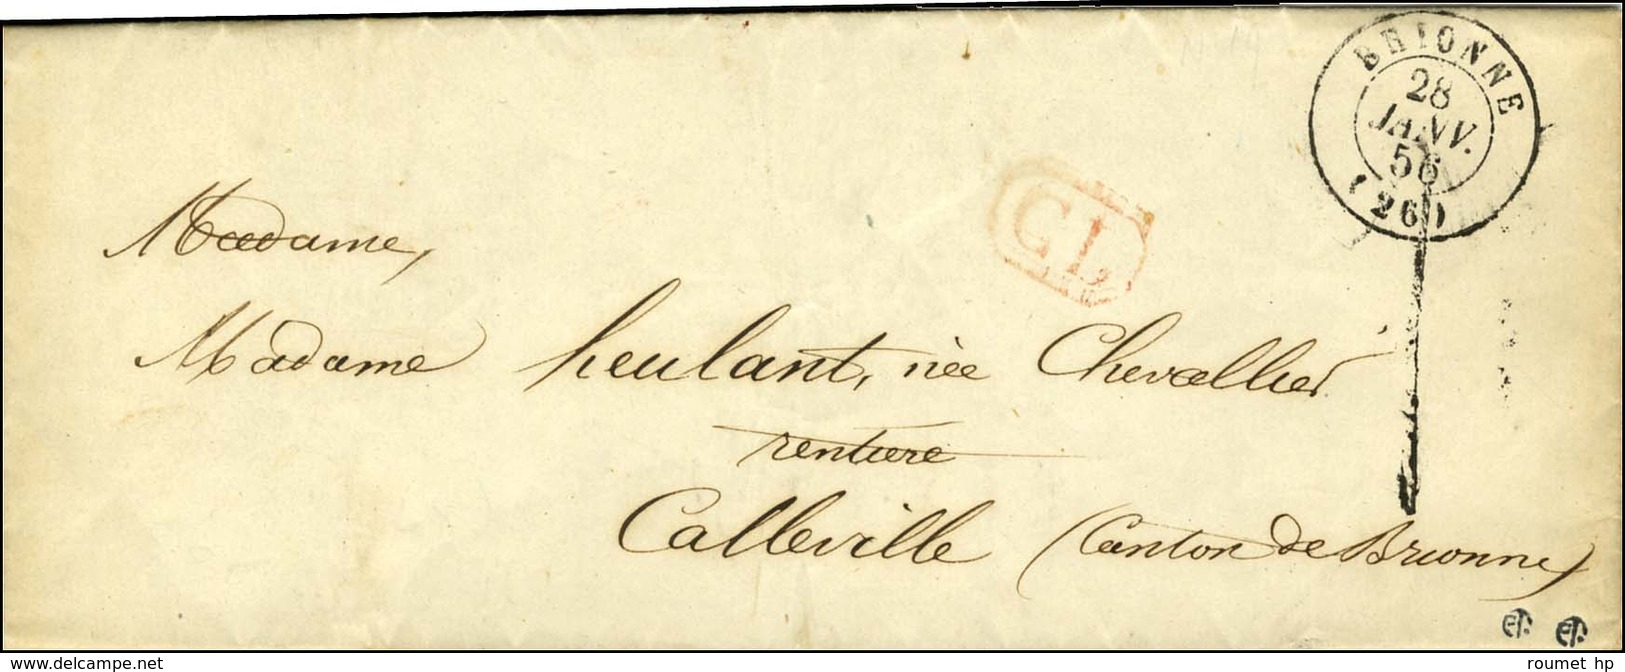 BRIONNE
28
JANV.
56
(26)
CL
Madame,
Madame heulant, née Chevallier
rentiere
Calleville (Canton de Brionne)
www.delcampe.net
roumet hp